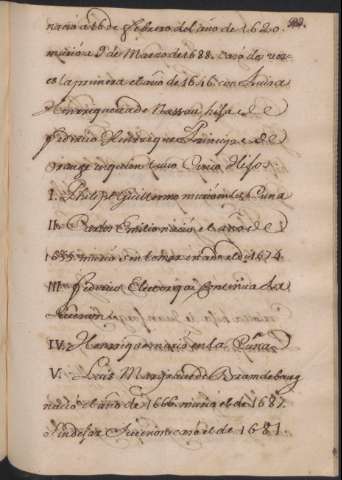 nacio a 16 de Febrero del año de 1620.
murio a 9 de Marzo de 1688. casó dos vez-
es la primera el año de 1646 con Luisa
Henriqueta de Nassau, hija de
Federico Henrique Principe de
Orange
I. Philipe Guillermo murio en la Cuna
II. Carlos Emilio nacio el año de
1655 murio sin tomar estado el de 1674.
III. Federico Elector qe continua la
Sucesion
IV. Henrique murio en la Cuna
V. Luis Margrave de Brandebourg
nacio el año de 1666 murio el de 1687.
sin dejar Sucesion caso el de 1681.